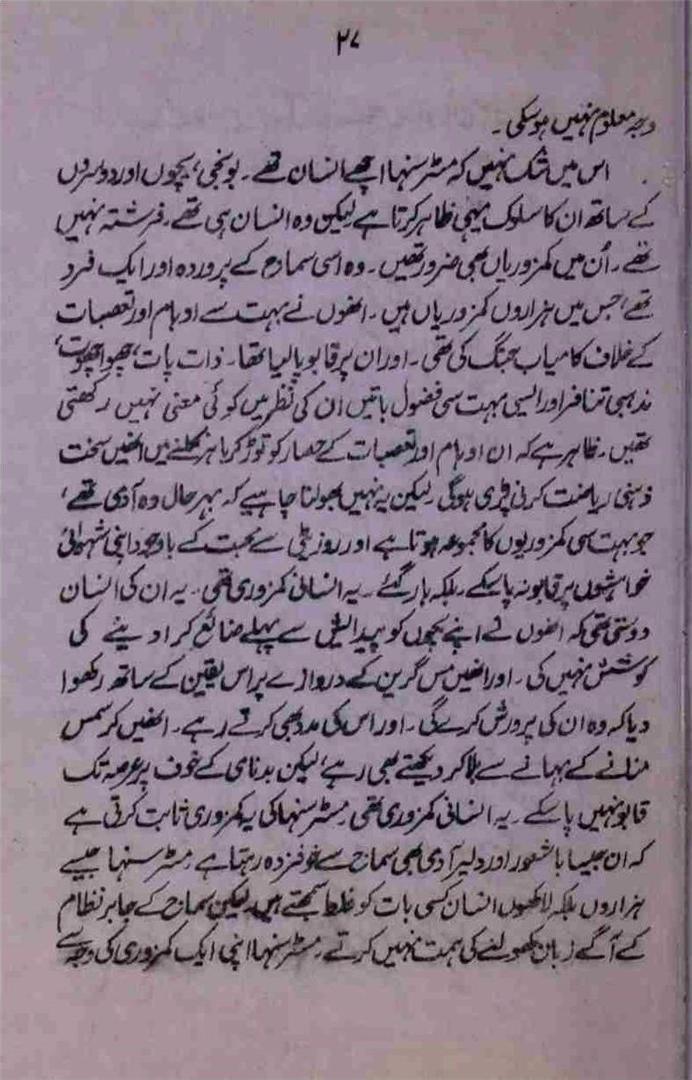 ۳۷
وجہ معلوم نہیں ہو سکی۔
اس میں شک نہیں کہ مسٹر سنہا اچھے انسان تھے۔ بونجی، بچوں اور دوسروں
کے ساتھ ان کا سلوک یہی ظاہر کرتا ہے لیکن وہ انسان ہی تھے۔ فرشتہ نہیں
تھے۔ اُن میں کمزوریاں بھی ضرور تھیں۔ وہ اسی سماج کے پروردہ اور ایک فرد
تھے، جس میں ہزاروں کمزوریاں ہیں۔ انھوں نے بہت سے اوہام اور تعصبات
کے خلاف کامیاب جنگ کی تھی۔ اور ان پر قابو پا لیا تھا۔ ذات پات، چھوا چھوت،
مذہبی تنافر اور ایسی بہت سی فضول باتیں ان کی نظر میں کوئی معنی نہیں رکھتی
تھیں۔ ظاہر ہے کہ ان اوہام اور تعصبات کے حصار کو توڑ کر باہر نکلنے میں انھیں سخت
ذہنی ریاضت کرنی پڑی ہوگی۔ لیکن یہ نہیں بھولنا چاہیے کہ بہر حال وہ آدمی تھے،
جو بہت سی کمزوریوں کا مجموعہ ہوتا ہے اور روزیٹی سے محبت کے باوجود اپنی شہوانی
خواہشوں پر قابو نہ پا سکے۔ بلکہ ہار گئے۔ یہ انسانی کمزوری تھی۔ یہ ان کی انسان
دوستی تھی کہ انھوں نے اپنے بچوں کو پیدائش سے پہلے ضائع کرا دینے کی
کوشش نہیں کی۔ اور انھیں مس گرین کے دروازے پر اس یقین کے ساتھ رکھوا
دیا کہ وہ ان کی پرورش کرے گی۔ اور اس کی مدد بھی کرتے رہے۔ انھیں کرسمس
منانے کے بہانے سے بلا کر دیکھتے بھی رہے، لیکن بدنامی کے خوف پر عرصہ تک
قابو نہیں پا سکے۔ یہ انسانی کمزوری تھی۔ مسٹر سنہا کی یہ کمزوری ثابت کرتی ہے
کہ ان جیسا باشعور اور دلیر آدمی بھی سماج سے خوفزدہ رہتا ہے۔ مسٹر سنہا جیسے
ہزاروں بلکہ لاکھوں انسان کسی بات کو غلط سمجھتے ہیں۔ لیکن سماج کے جابر نظام
کے آگے زبان کھولنے کی ہمت نہیں کرتے۔ مسٹر سنہا اپنی ایک کمزوری کی وجہ سے